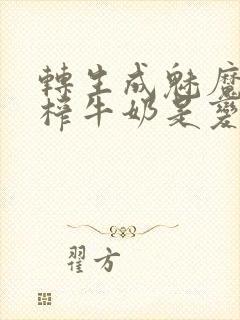 轉生成魅魔
榨牛奶是變
翟方